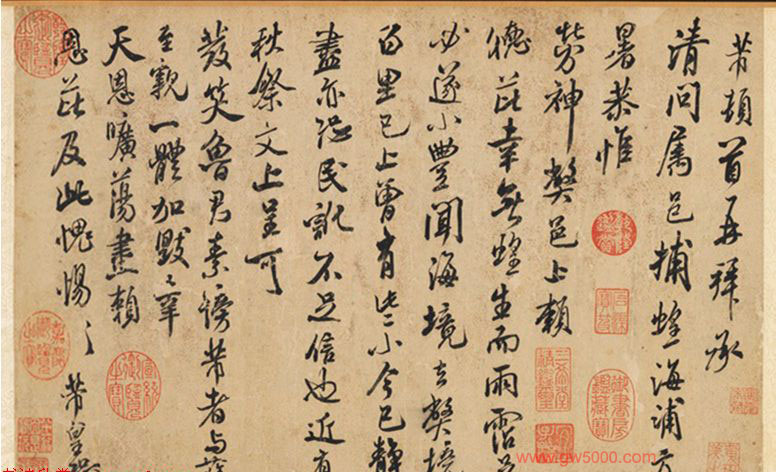 芾頓首再拜承
清問属邑捕蝗海浦
暑恭惟
勞神弊邑上賴
德芘幸無蝗生而雨露
必遂小豐聞海境去弊境
百里已上曾有些小今已靜
盡亦恐民訛不足信也近有
秋祭文上呈可
發笑魯君素謗芾者与
至親一體加毀〻辜
天恩曠蕩盡賴
恩芘及此愧惕〻 芾皇
www.gw5000.com